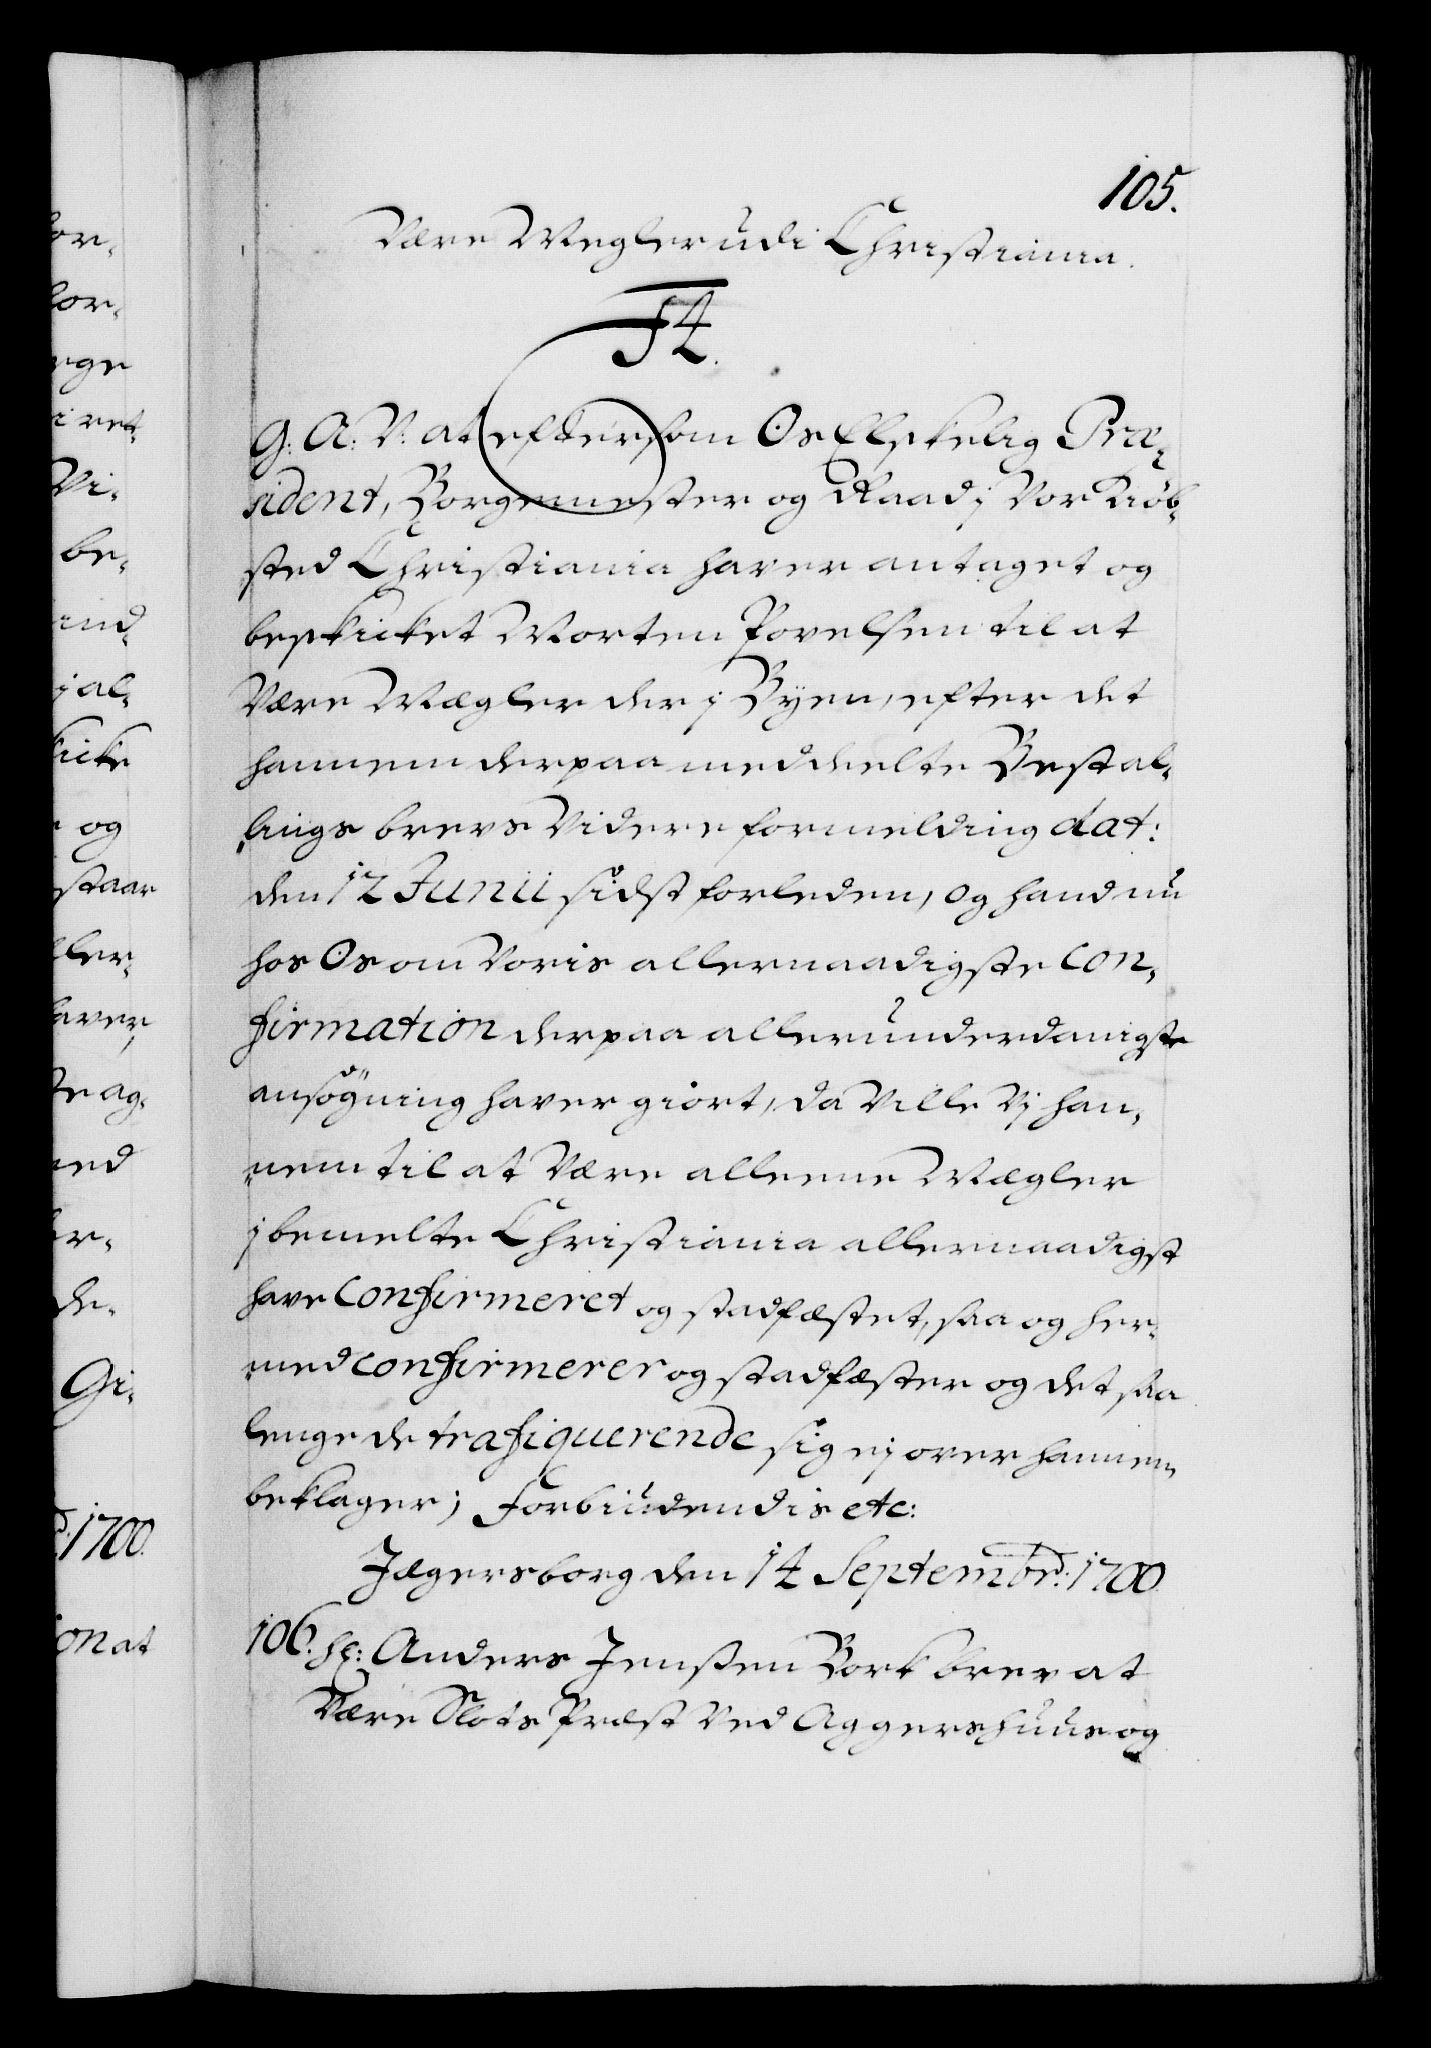 105.
Være Megler udi Christiania.
F4.
G: A: V: at eftersom Os Elskelig Præ-
sident, Borgemester og Raad j Vor Kiøb-
sted Christiania haver antaget og
beskicket Morten Povelsen til at
Være Mægler der j Byen, efter det
hannem derpaa meddeelte Bestal-
lings brevs Videre formelding dat:
den 12 Junii sidst forleden, og hand nu
hos Os om Voris allernaadigste Con-
firmation derpaa allerunderdanigste
ansøgning haver giort, da Ville Vj han-
nem til at Være alleene Mægler
j bemelte Christiania allernaadigst
have Confirmeret og stadfæstet, saa og her-
med Confirmerer og stadfæster og det saa
lenge de trafiquerende sig ej over hannem
beklager; Forbiudendis etc:
Jægersborg den 14 Septembr: 1700.
106. Hr: Anders Jenssen Bork brev at
Være Slots Præst Ved Aggershuus og
for-
for-
rge
i ret-
Vi-
be-
ind-
j al-
kicke
og
staar
ller-
haver,
te ag-
ned
er-
de-
Gi-
1700.
on at